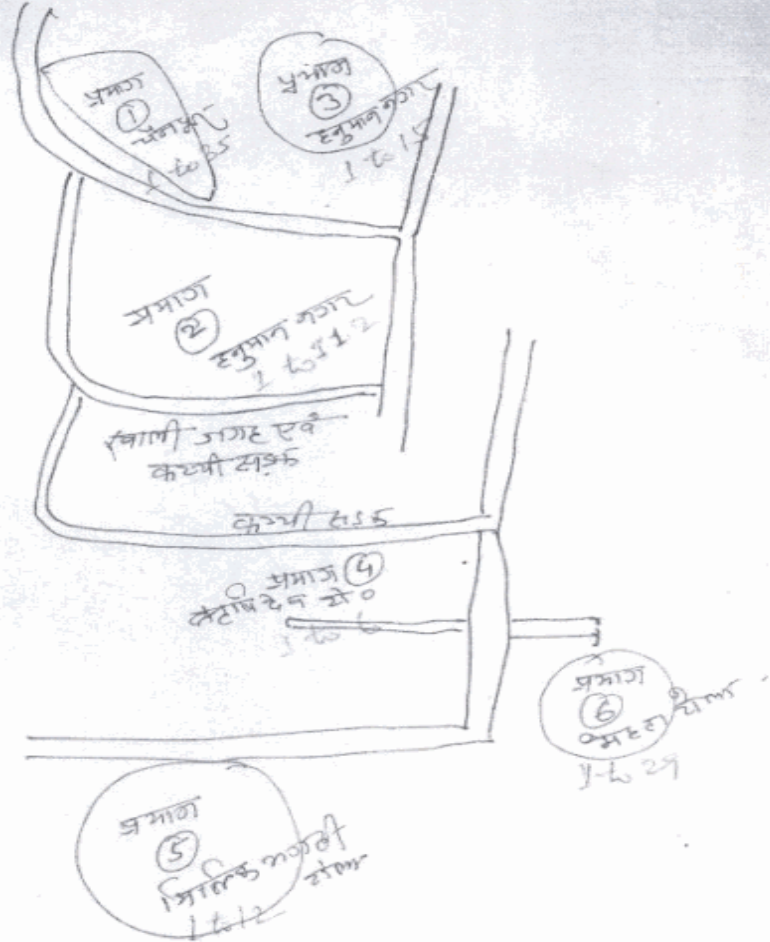 प्रभाग
1
1 to 35
प्रभाग
3
हनुमान नगर
1 to 15
प्रभाग
2
हनुमान नगर
1 to 112
खाली जगह एवं
कच्ची सड़क
कच्ची सड़क
प्रभाग 4
1 to 6
प्रभाग
6
टोला
1 to 29
प्रभाग
5
टोला
1 to 12